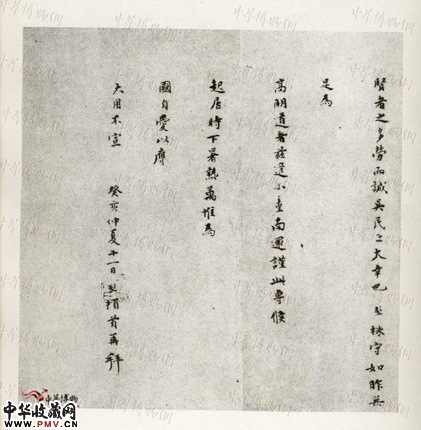 賢者之多勞而誠吳民之大幸也 堅株守如昨無
足為
高明道者茲遣小童南還謹此專候
起居時下暑熱萬惟為
國自愛以膺
大用不宣
癸亥仲夏廿一日 頓首再拜
中华收藏网
www.PMV.CN